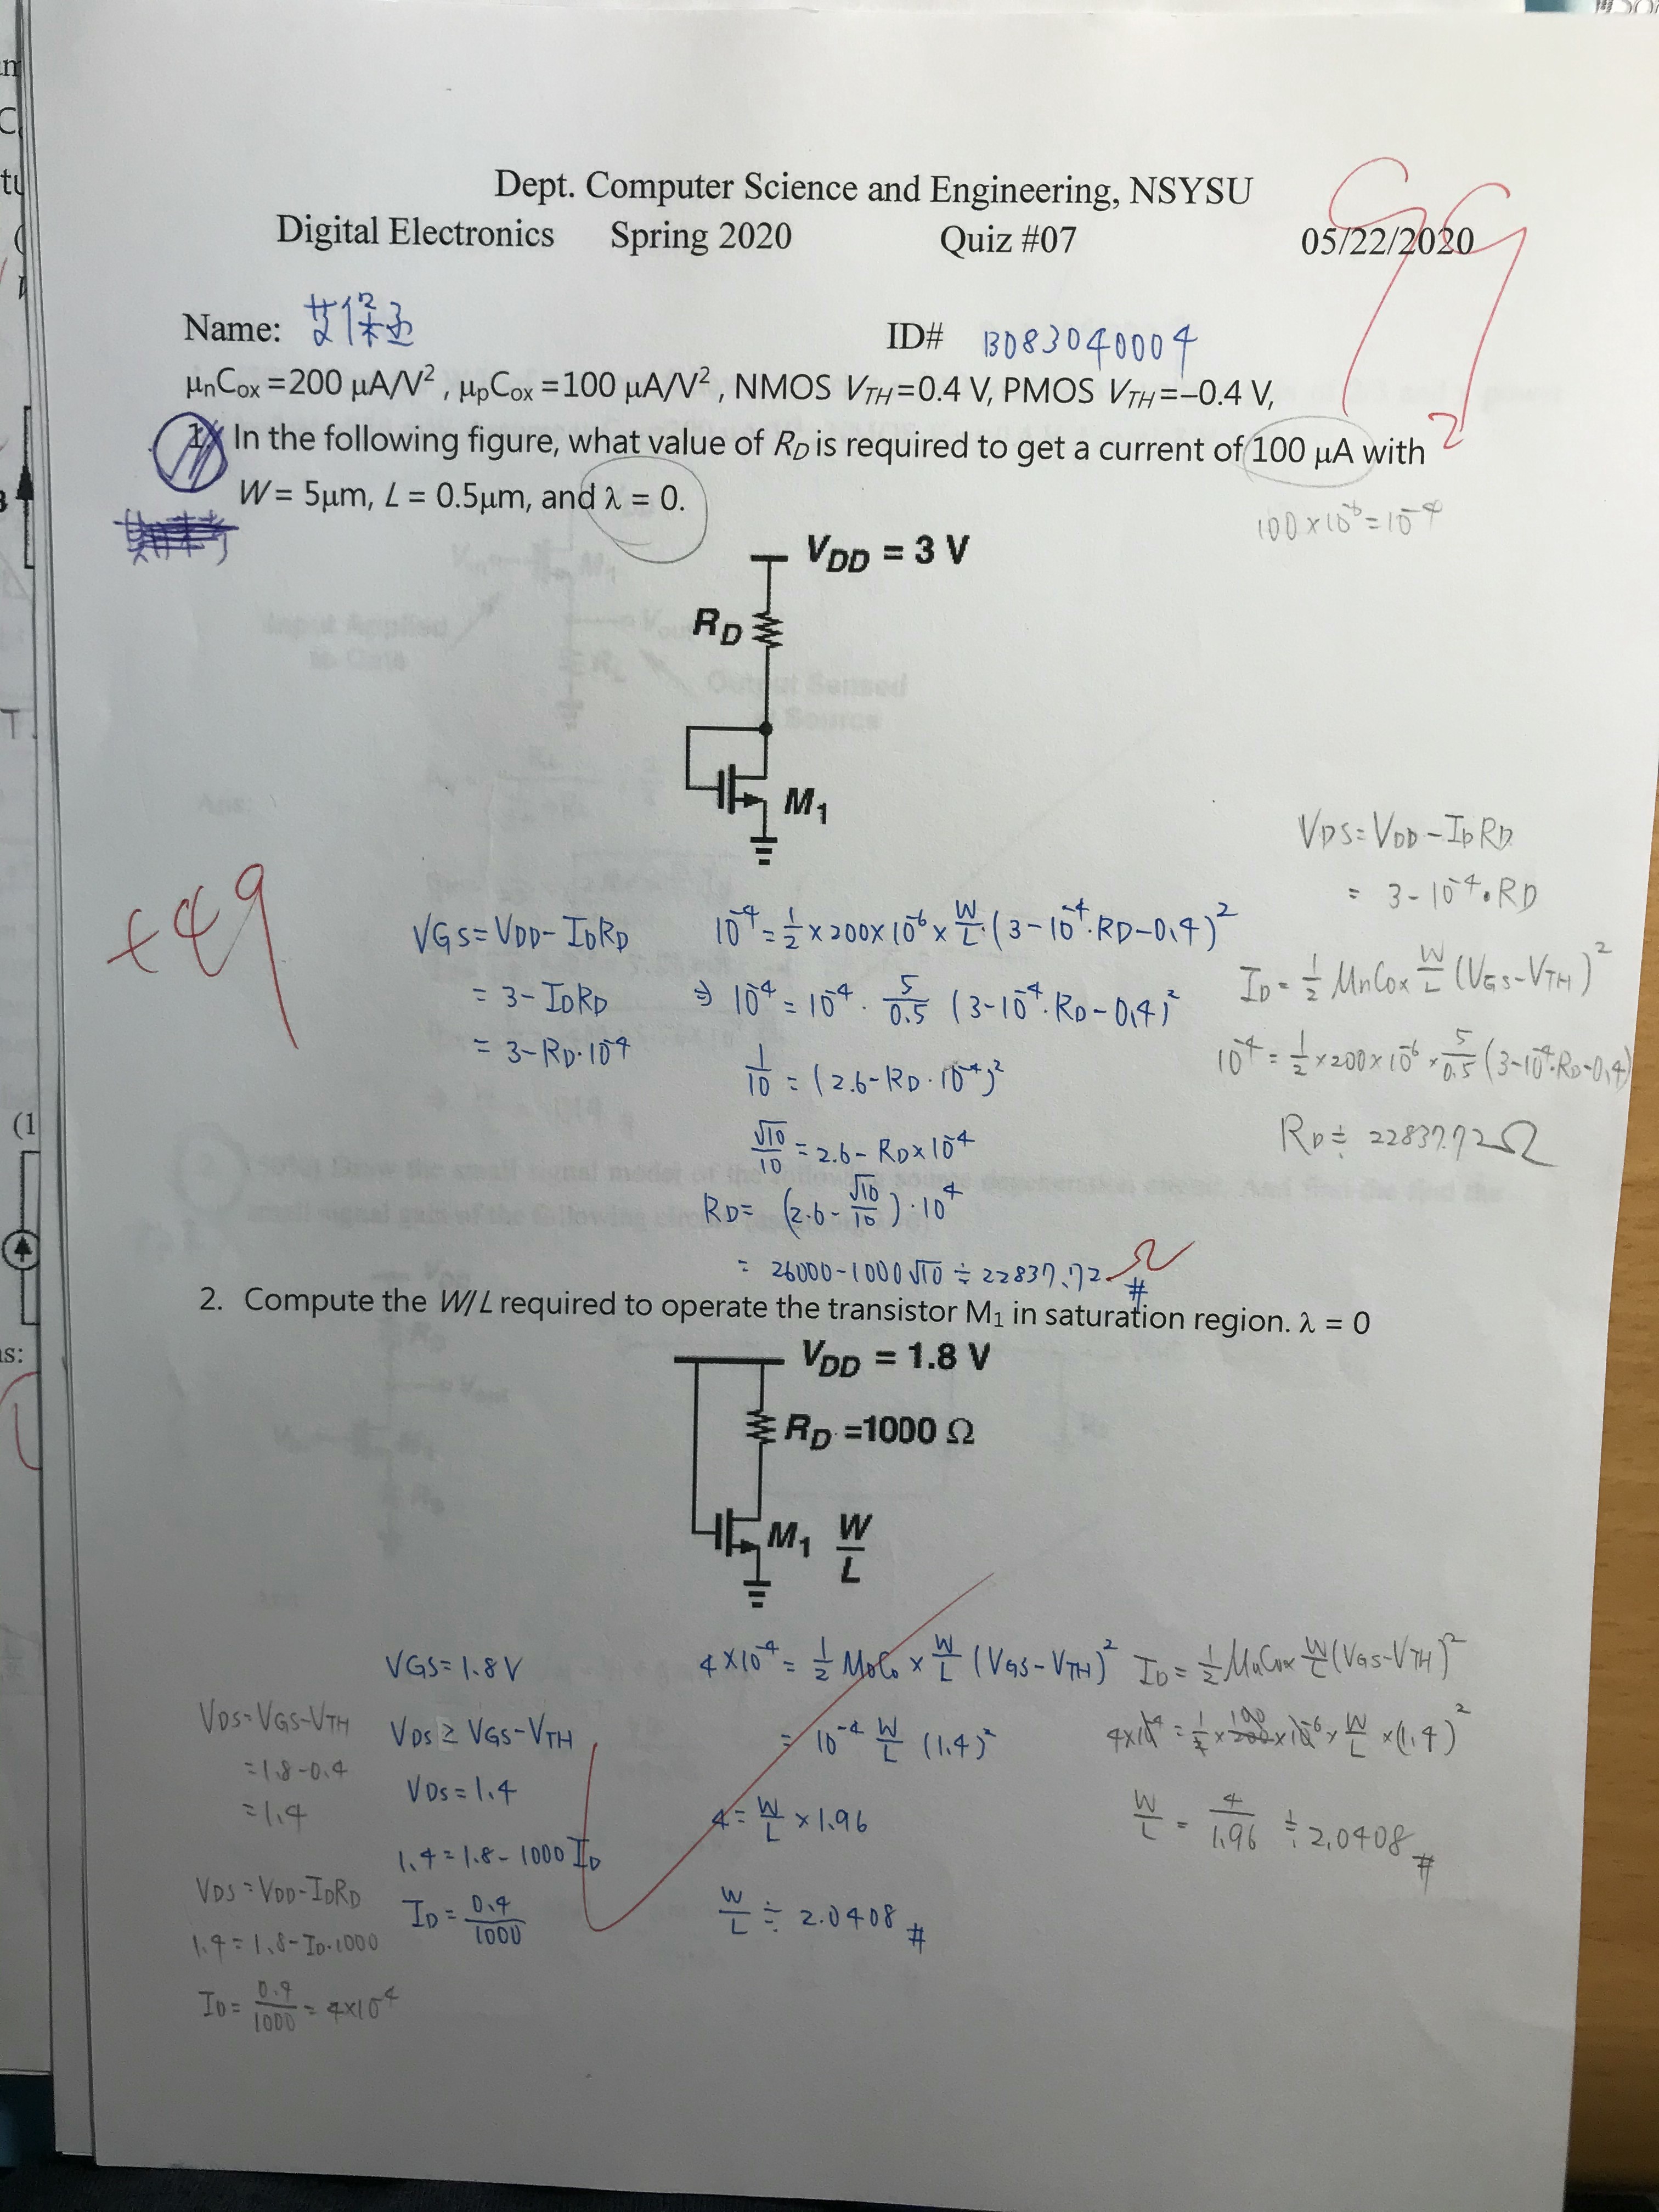 Dept. Computer Science and Engineering, NSYSU
Digital Electronics Spring 2020 Quiz #07 05/22/2020
99
Name: 艾保丞 ID# B083040004
μnCox =200 μA/V² , μpCox =100 μA/V² , NMOS VTH=0.4 V, PMOS VTH=−0.4 V,
1. In the following figure, what value of RD is required to get a current of 100 μA with
W= 5μm, L= 0.5μm, and λ = 0.
100×10⁻⁶=10⁻⁴
VDD = 3 V
RD
M1
+49
VGS=VDD-IDRD
= 3-IDRD
= 3-RD·10⁻⁴
10⁻⁴=1/2×200×10⁻⁶×W/L·(3-10⁻⁴·RD-0.4)²
⇒ 10⁻⁴=10⁻⁴·5/0.5 (3-10⁻⁴·RD-0.4)²
1/10=(2.6-RD·10⁻⁴)²
√10/10=2.6-RD×10⁻⁴
RD=(2.6-√10/10)·10⁴
= 26000-1000√10≒22837.72 Ω #
VDS=VDD-IDRD
= 3-10⁻⁴·RD
ID=1/2 μnCox W/L (VGS-VTH)²
10⁻⁴=1/2×200×10⁻⁶×5/0.5(3-10⁻⁴·RD-0.4)
RD≒22837.72Ω
2. Compute the W/L required to operate the transistor M1 in saturation region. λ = 0
VDD = 1.8 V
RD =1000 Ω
M1 W/L
VGS=1.8V
VDS≥VGS-VTH
VDS=1.4
1.4=1.8-1000ID
ID=0.4/1000
VDS=VGS-VTH
=1.8-0.4
=1.4
VDS=VDD-IDRD
1.4=1.8-ID·1000
ID=0.4/1000=4×10⁻⁴
4×10⁻⁴=1/2 μnCo×W/L (VGS-VTH)²
=10⁻⁴ W/L (1.4)²
4=W/L×1.96
W/L≒2.0408 #
ID=1/2 μnCox W/L(VGS-VTH)²
4×10⁻⁴=1/2×200×10⁻⁶×W/L×(1.4)²
W/L=4/1.96≒2.0408 #